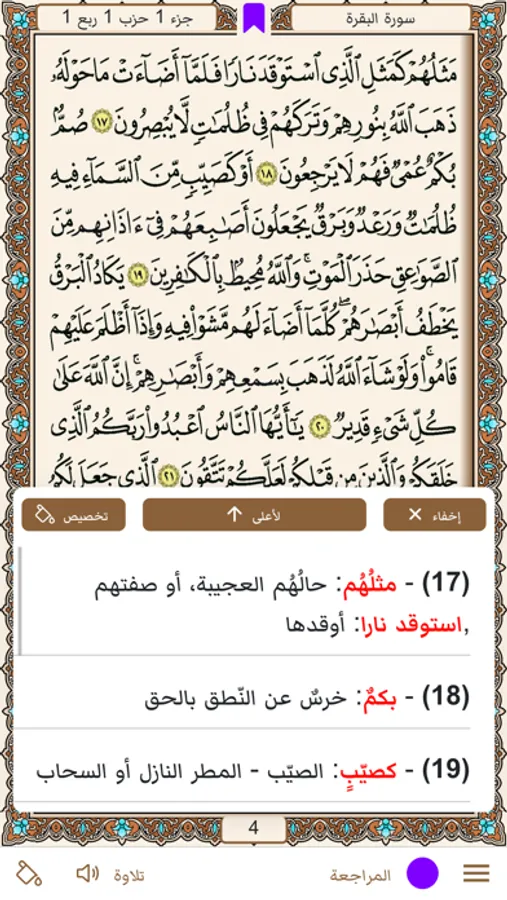 سورة البقرة
جزء 1 حزب 1 ربع 1
مَثَلُهُمْ كَمَثَلِ ٱلَّذِى ٱسْتَوْقَدَ نَارًا فَلَمَّآ أَضَآءَتْ مَا حَوْلَهُۥ
ذَهَبَ ٱللَّهُ بِنُورِهِمْ وَتَرَكَهُمْ فِى ظُلُمَٰتٍ لَّا يُبْصِرُونَ ١٧ صُمٌّۢ
بُكْمٌ عُمْىٌ فَهُمْ لَا يَرْجِعُونَ ١٨ أَوْ كَصَيِّبٍ مِّنَ ٱلسَّمَآءِ فِيهِ
ظُلُمَٰتٌ وَرَعْدٌ وَبَرْقٌ يَجْعَلُونَ أَصَٰبِعَهُمْ فِىٓ ءَاذَانِهِم مِّنَ
ٱلصَّوَٰعِقِ حَذَرَ ٱلْمَوْتِ ۚ وَٱللَّهُ مُحِيطٌۢ بِٱلْكَٰفِرِينَ ١٩ يَكَادُ ٱلْبَرْقُ
يَخْطَفُ أَبْصَٰرَهُمْ ۖ كُلَّمَآ أَضَآءَ لَهُم مَّشَوْا۟ فِيهِ وَإِذَآ أَظْلَمَ عَلَيْهِمْ
قَامُوا۟ ۚ وَلَوْ شَآءَ ٱللَّهُ لَذَهَبَ بِسَمْعِهِمْ وَأَبْصَٰرِهِمْ ۚ إِنَّ ٱللَّهَ عَلَىٰ
كُلِّ شَىْءٍ قَدِيرٌ ٢٠ يَٰٓأَيُّهَا ٱلنَّاسُ ٱعْبُدُوا۟ رَبَّكُمُ ٱلَّذِى
خَلَقَكُمْ وَٱلَّذِينَ مِن قَبْلِكُمْ لَعَلَّكُمْ تَتَّقُونَ ٢١ ٱلَّذِى جَعَلَ لَكُمُ
إخفاء ✕
لأعلى ↑
تخصيص
(17) - مثلُهُم: حالُهُم العجيبة، أو صفتهم
,استوقد نارا: أوقدها
(18) - بكمٌ: خرسٌ عن النّطق بالحق
(19) - كصيّبٍ: الصيّب - المطر النازل أو السحاب
4
المراجعة
تلاوة